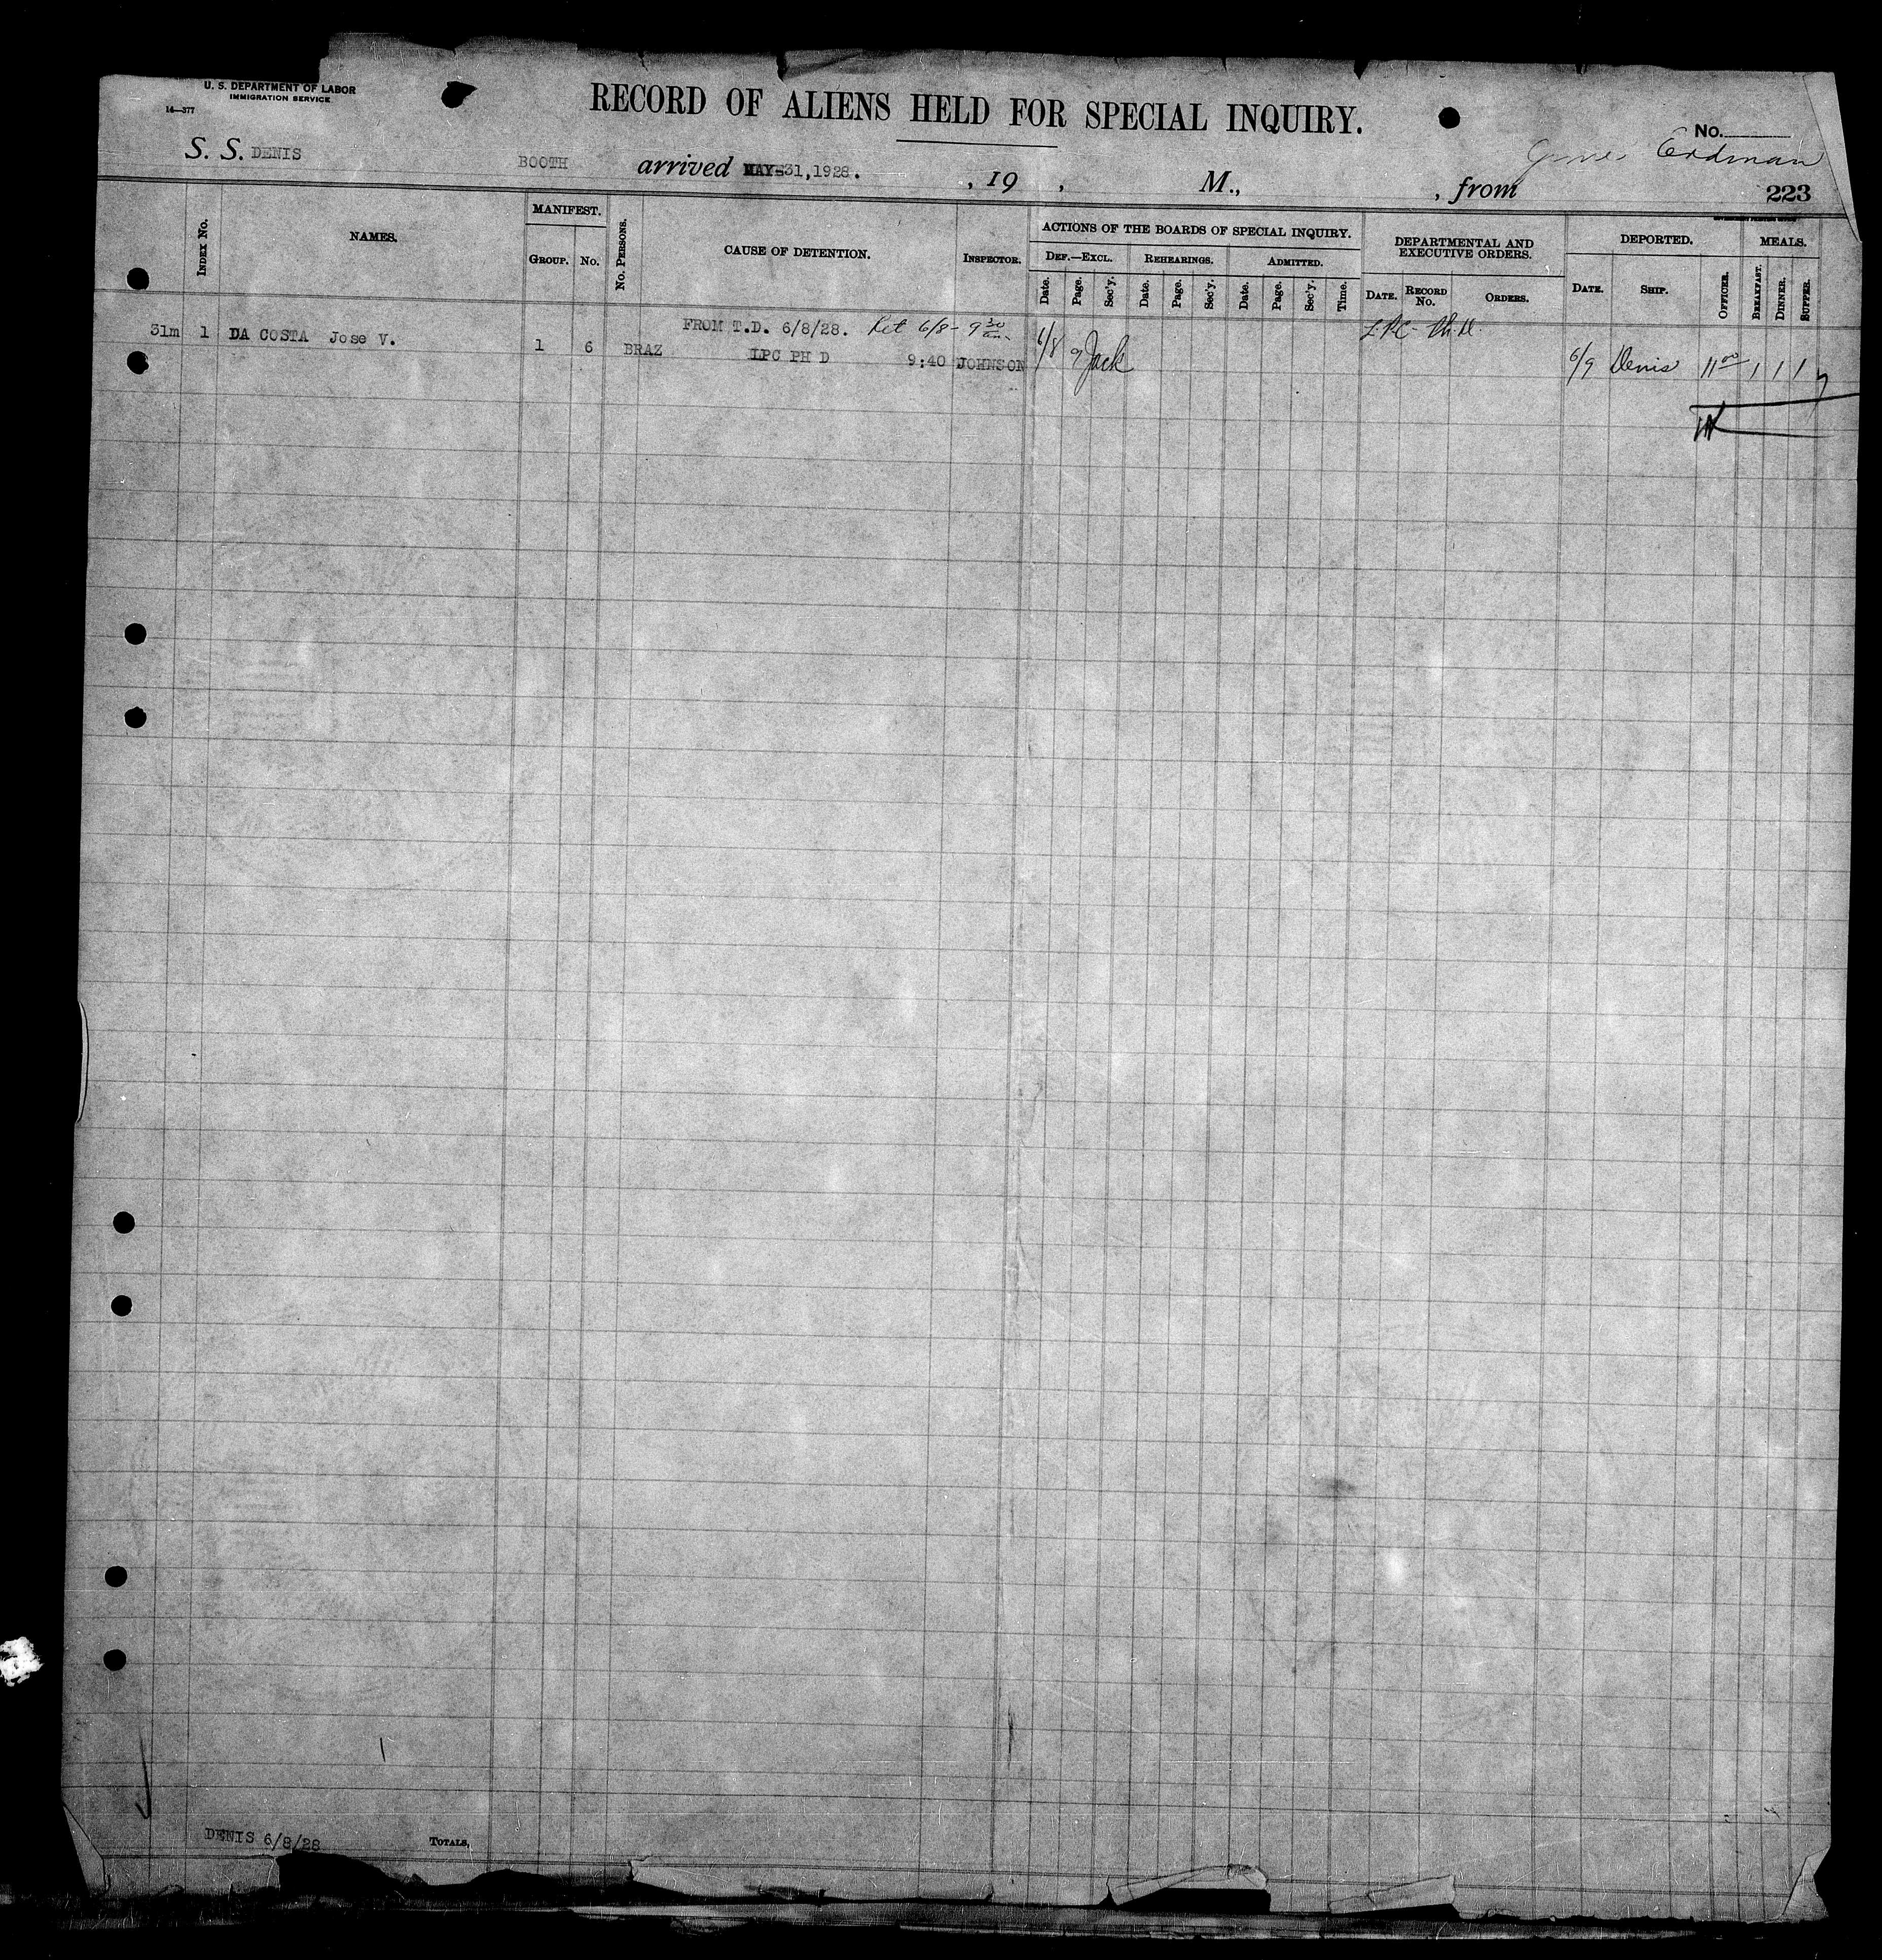 U. S. DEPARTMENT OF LABOR
IMMIGRATION SERVICE
14—377
RECORD OF ALIENS HELD FOR SPECIAL INQUIRY.
No.
Erdman
S. S. DENIS BOOTH arrived MAY 31,1928. , 19 , M., , from
223
INDEX No. NAMES. MANIFEST. GROUP. No. No. PERSONS. CAUSE OF DETENTION. INSPECTOR.
ACTIONS OF THE BOARDS OF SPECIAL INQUIRY.
DEF.—EXCL. REHEARINGS. ADMITTED.
Date. Page. Sec'y. Date. Page. Sec'y. Date. Page. Sec'y. Time.
DEPARTMENTAL AND
EXECUTIVE ORDERS.
DATE. RECORD No. ORDERS.
DEPORTED.
DATE. SHIP. OFFICER.
MEALS.
BREAKFAST. DINNER. SUPPER.
FROM T.D. 6/8/28. Ret 6/8- 9 30 am L.P.C- Ph.D.
31m 1 DA COSTA Jose V. 1 6 BRAZ LPC PH D 9:40 JOHNSON 6/8 9 Jack 6/9 Denis 11 00 1 1 1
DENIS 6/8/28 TOTALS,